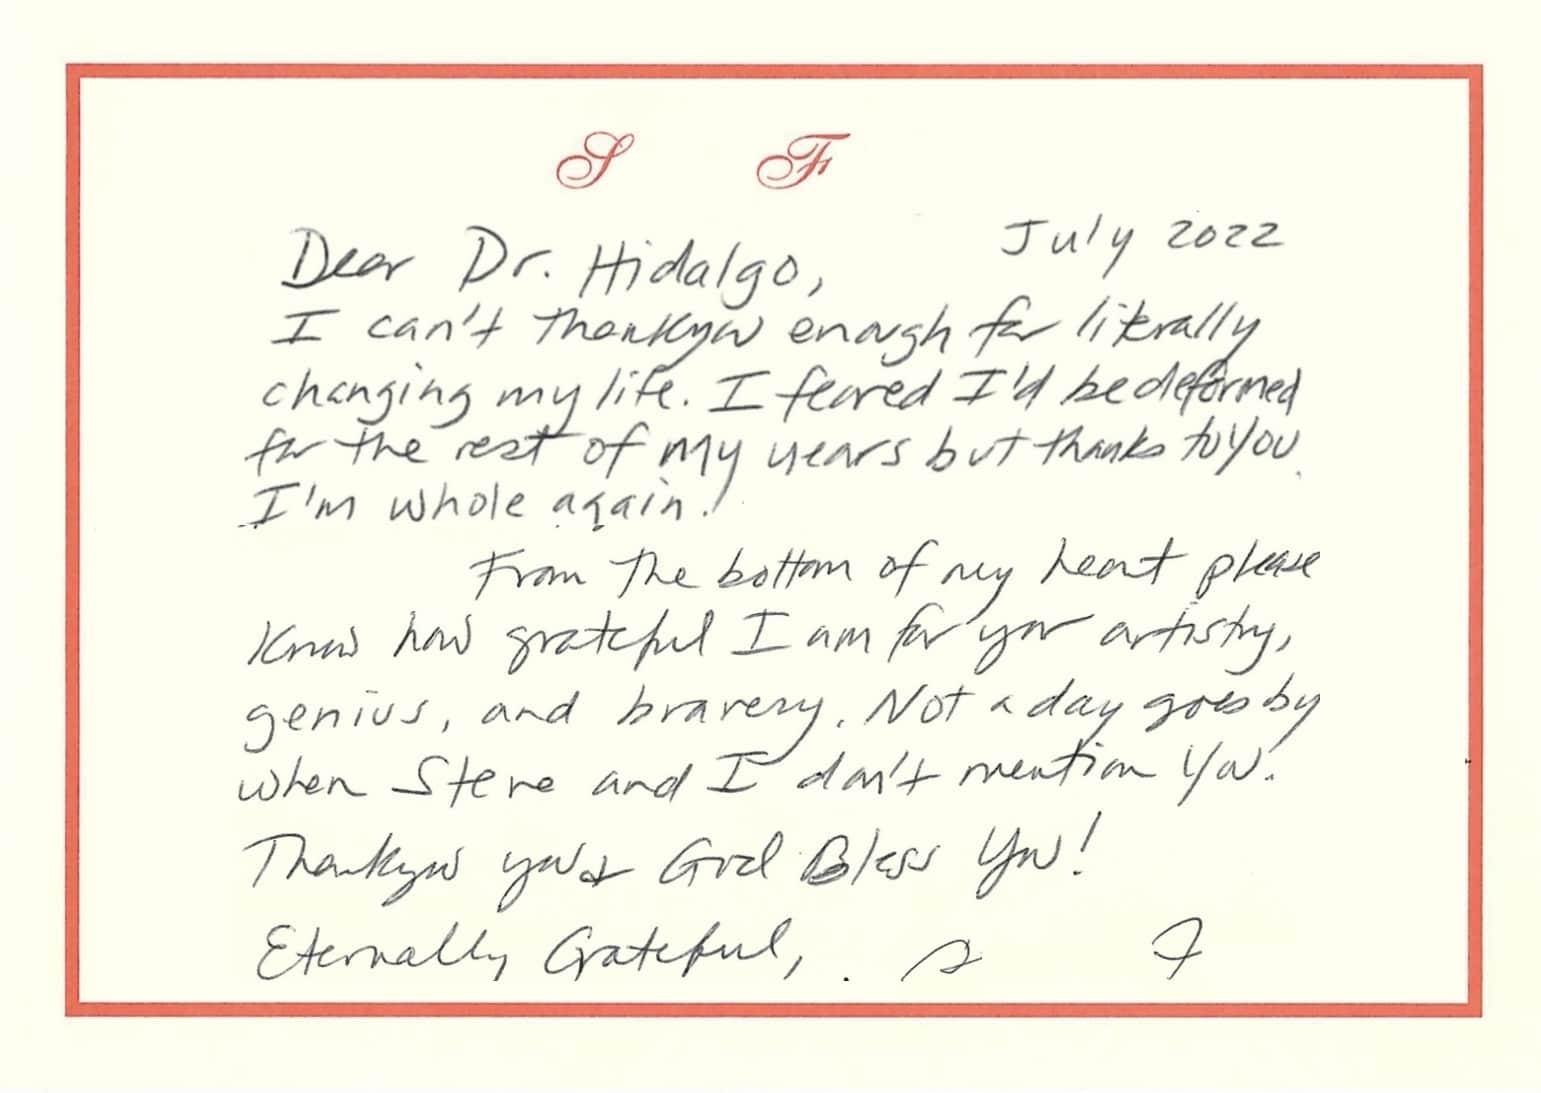 S F
July 2022
Dear Dr. Hidalgo,
I can't thank you enough for literally
changing my life. I feared I'd be deformed
for the rest of my years but thanks to you
I'm whole again!
From the bottom of my heart please
know how grateful I am for your artistry,
genius, and bravery. Not a day goes by
when Steve and I don't mention you.
Thank you you & God Bless You!
Eternally Grateful, S F